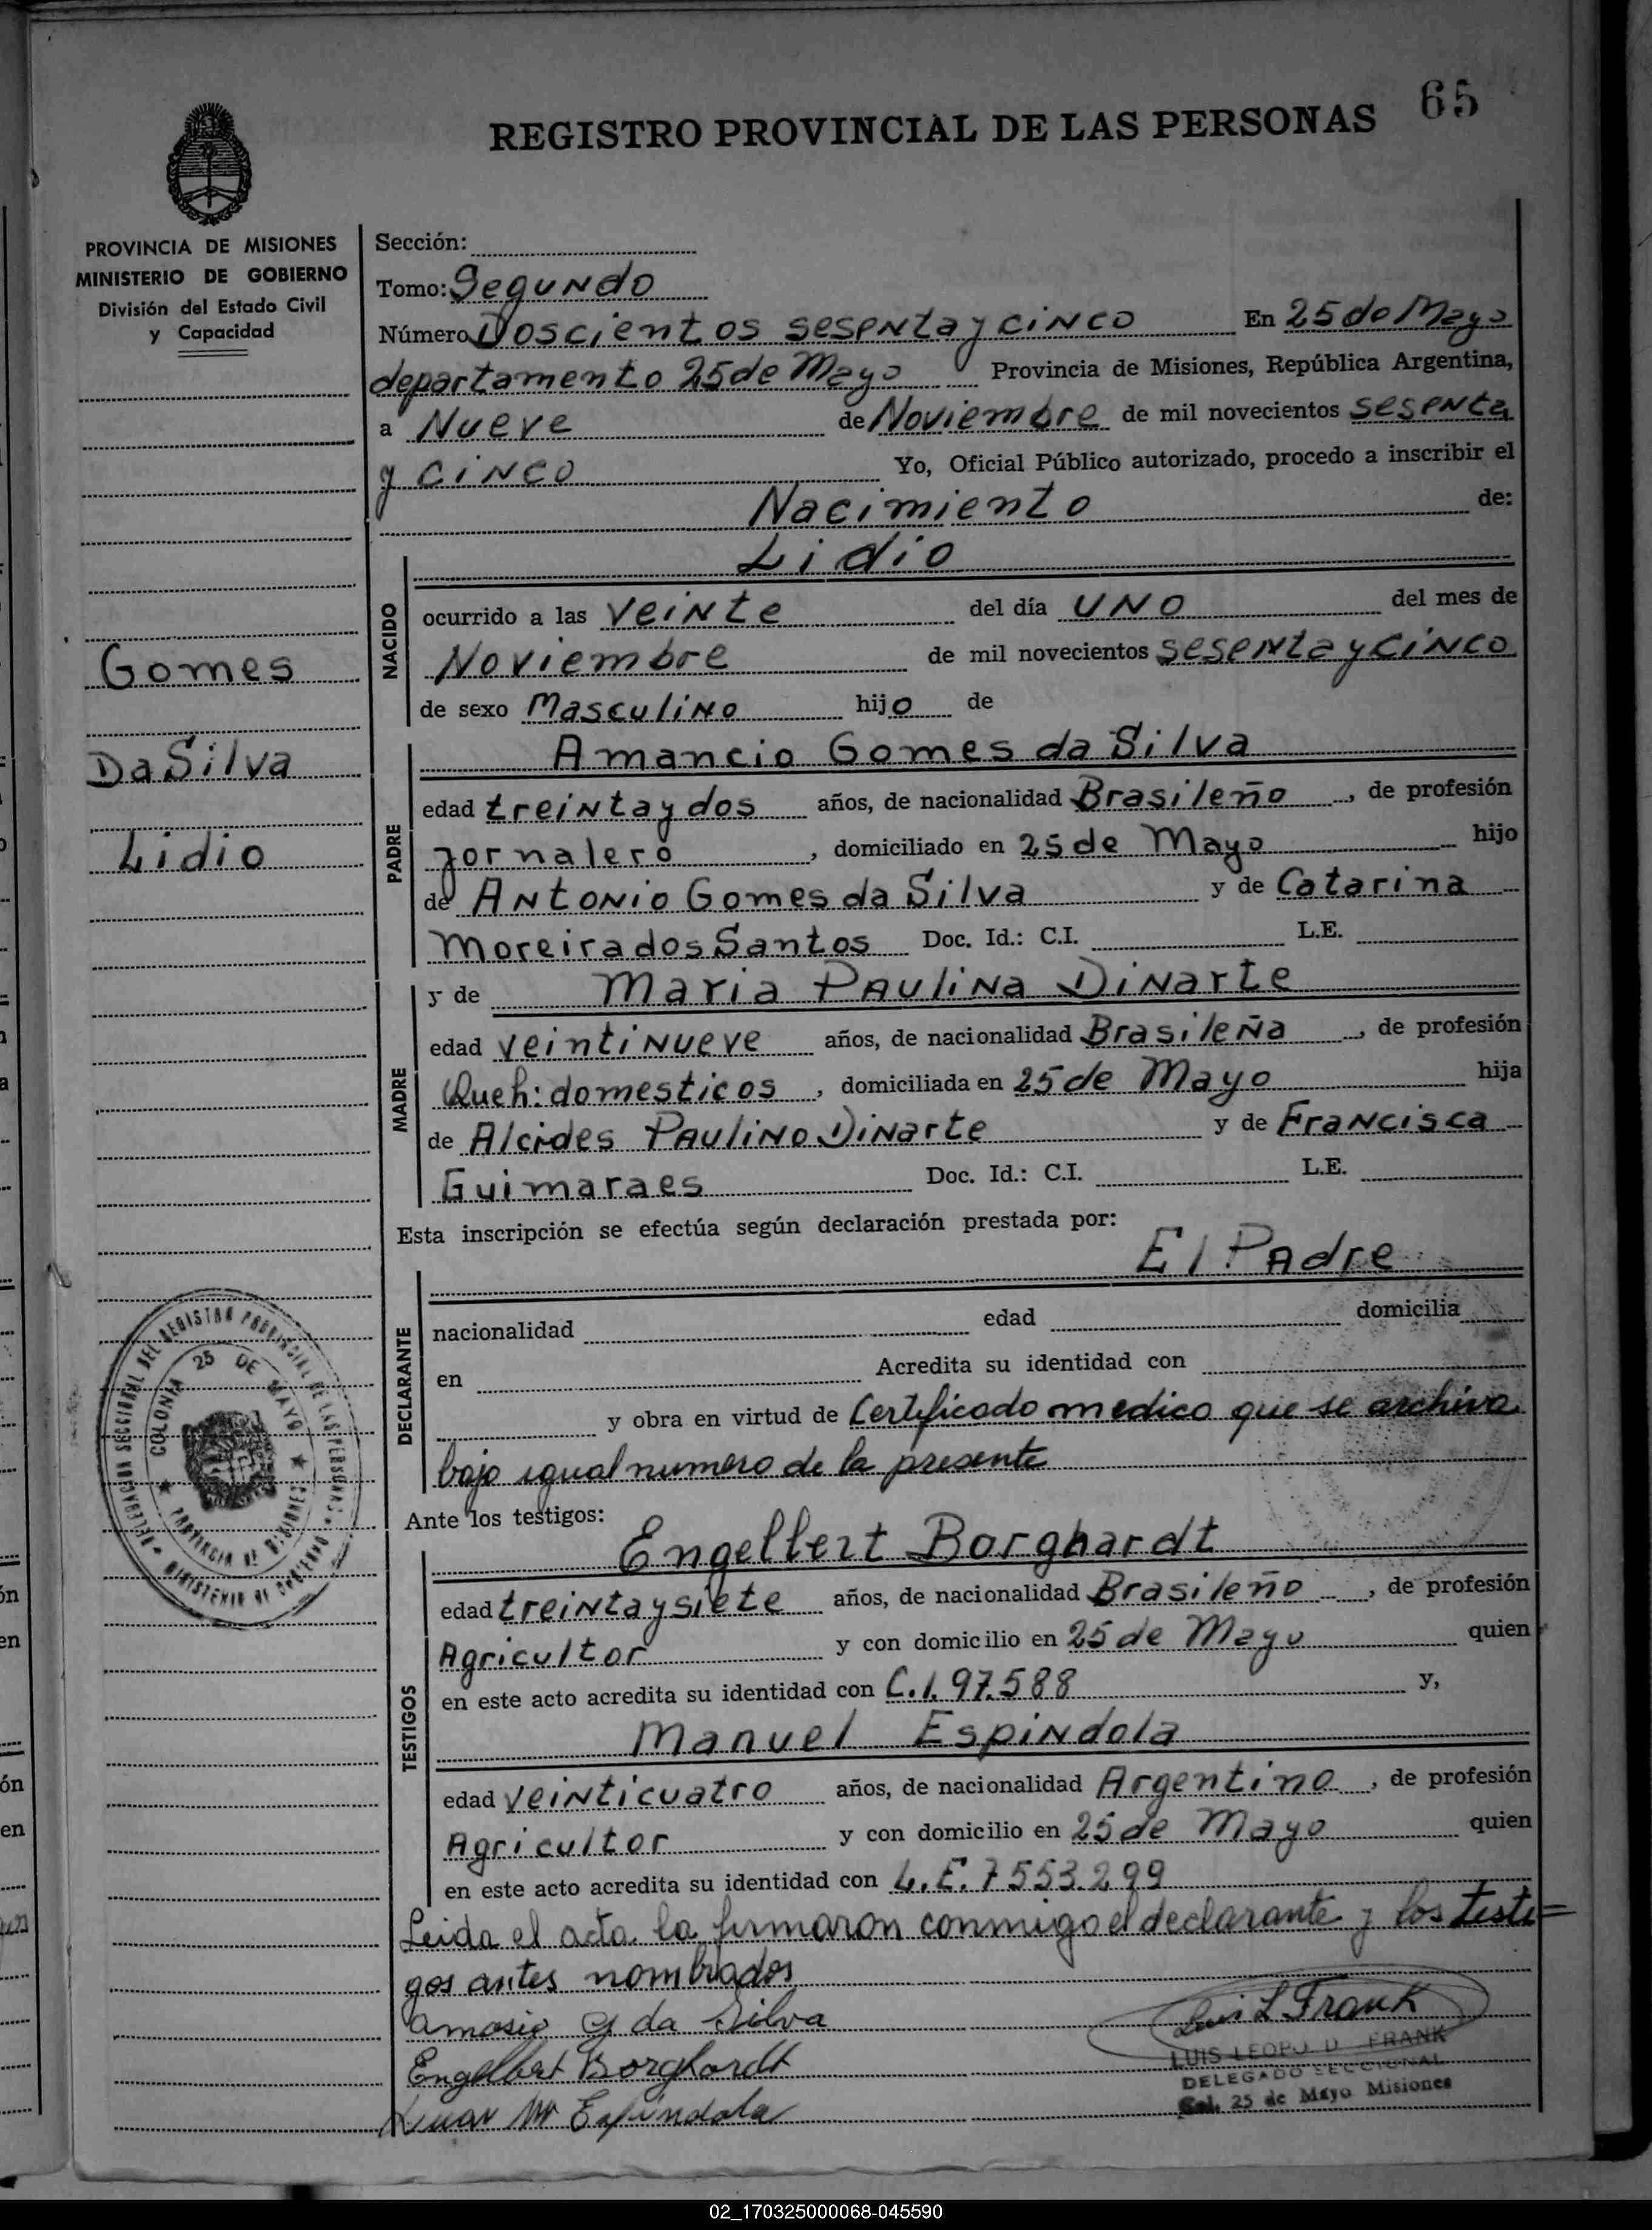 65
REGISTRO PROVINCIAL DE LAS PERSONAS
PROVINCIA DE MISIONES
MINISTERIO DE GOBIERNO
División del Estado Civil
y Capacidad
Gomes
Da Silva
Lidio
Sección:
Tomo: Segundo
Número Doscientos sesenta y cinco En 25 de Mayo
departamento 25 de Mayo Provincia de Misiones, República Argentina,
a Nueve de Noviembre de mil novecientos sesenta
y cinco Yo, Oficial Público autorizado, procedo a inscribir el
Nacimiento de:
Lidio
NACIDO
ocurrido a las veinte del día uno del mes de
Noviembre de mil novecientos sesenta y cinco
de sexo Masculino hijo de
PADRE
Amancio Gomes da Silva
edad treinta y dos años, de nacionalidad Brasileño, de profesión
Jornalero, domiciliado en 25 de Mayo hijo
de Antonio Gomes da Silva y de Catarina
Moreira dos Santos Doc. Id.: C.I. L.E.
MADRE
y de Maria Paulina Dinarte
edad veintinueve años, de nacionalidad Brasileña, de profesión
Queh: domesticos, domiciliada en 25 de Mayo hija
de Alcides Paulino Dinarte y de Francisca
Guimaraes Doc. Id.: C.I. L.E.
Esta inscripción se efectúa según declaración prestada por:
El Padre
DECLARANTE
nacionalidad edad domicilia
en Acredita su identidad con
y obra en virtud de Certificado medico que se archiva
bajo igual numero de la presente
Ante los testigos:
TESTIGOS
Engelbert Borghardt
edad treinta y siete años, de nacionalidad Brasileño, de profesión
Agricultor y con domicilio en 25 de Mayo quien
en este acto acredita su identidad con C.I. 97.588 y,
Manuel Espindola
edad veinticuatro años, de nacionalidad Argentino, de profesión
Agricultor y con domicilio en 25 de Mayo quien
en este acto acredita su identidad con L.E. 7553.299
Leida el acta la firmaron conmigo el declarante y los testi=
gos antes nombrados
amosio G da Silva
Engelbert Borghardt
Espindola
Luis L Frank
LUIS LEOPO D FRANK
DELEGADO SECCIONAL
Col. 25 de Mayo Misiones
DELEGACION SECCIONAL DEL REGISTRO PROVINCIAL DE LAS PERSONAS
MINISTERIO DE GOBIERNO
COLONIA 25 DE MAYO
PROVINCIA DE MISIONES
02_170325000068-045590